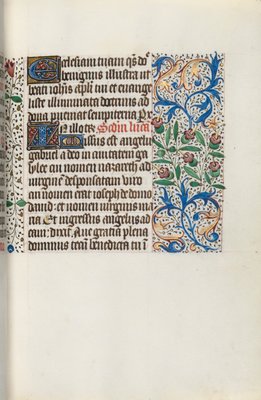 Ecclesiam tuam qs do
benignus illustra ut
beati iohis apli tui et euange
liste illuminata doctrinis ad
dona pueniat sempiterna P
In illo tē Scdm lucā
Missus est angelus
gabriel a deo in ciuitatem ga
lylee cui nomen nazareth ad
uirginē desponsatam uiro
cui nomen erat ioseph de domo
dauid: et nomen uirginis ma
ria Et ingressus angelus ad
eam: dixit Aue gratia plena
dominus tecū benedicta tu ī